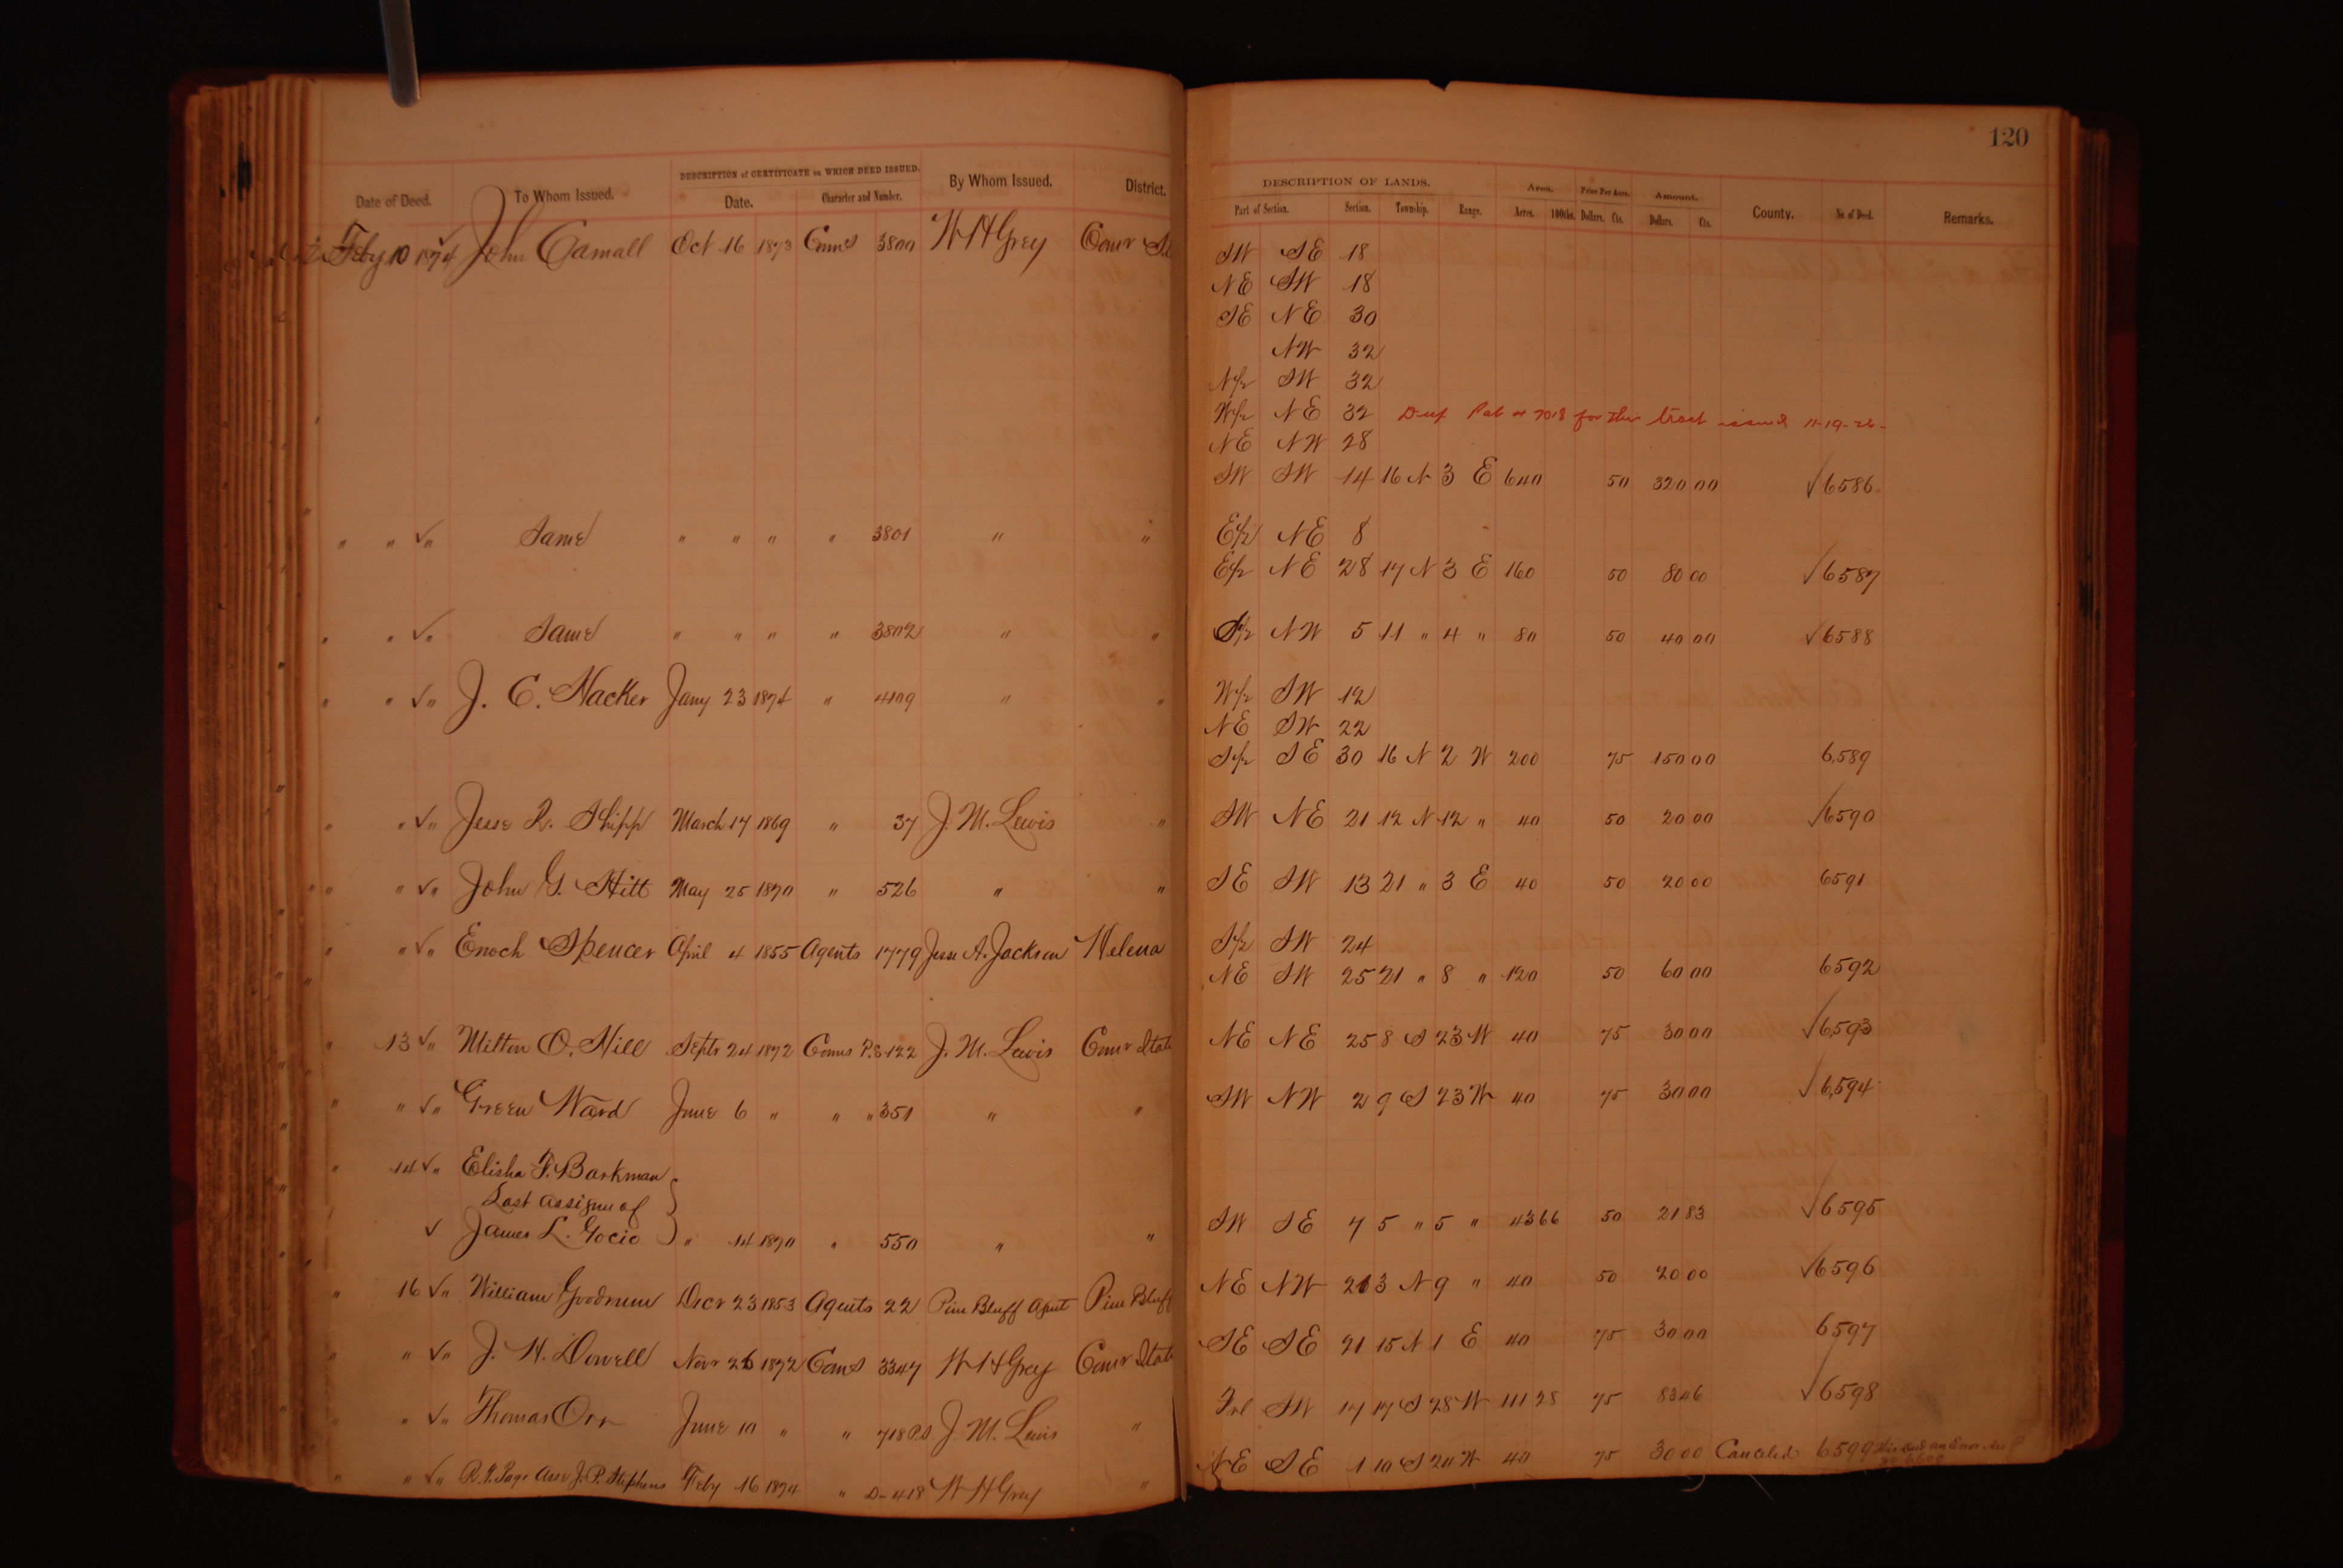 120
DESCRIPTION of CERTIFICATE on WHICH DEED ISSUED. DESCRIPTION OF LANDS. Area. Price Per Acre. Amount.
Date of Deed. To Whom Issued. Date. Character and Number. By Whom Issued. District. Part of Section. Section. Township. Range. Acres. 100ths. Dollars. Cts. Dollars. Cts. County. No. of Deed. Remarks.
Feby 10 1874 John Carnall Oct 16 1873 Coms 3800 W H Grey Comr SW SE 18
NE SW 18
SE NE 30
NW 32
N/2 SW 32
W/2 NE 32 Dup Pat # 7018 for this tract issued 11-19-26-
NE NW 28
SW SW 14 16 N 3 E 640 50 320 00 √ 6586
" " √" Same " " " " 3801 " " E/2 NE 8
E/2 NE 28 17 N 3 E 160 50 80 00 √ 6587
" " √" Same " " " " 3802 " " S/2 NW 5 11 " 4 " 80 50 40 00 √ 6588
" " √" J. C. Hacker Jany 23 1874 " 4109 " " W/2 SW 12
NE SW 22
S/2 SE 30 16 N 2 W 200 75 150 00 6589
" " √" Jesse R. Shipp March 17 1869 " 37 J. M. Lewis " SW NE 21 12 N 12 " 40 50 20 00 √ 6590
" " √" John G. Hitt May 25 1870 " 526 " " SE SW 13 21 " 3 E 40 50 20 00 6591
" " √" Enoch Spencer April 4 1855 Agents 1779 Jesse A. Jackson Helena S/2 SW 24
NE SW 25 21 " 8 " 120 50 60 00 6592
" 13 √" Milton O. Hill Septr 24 1872 Coms P.S 122 J. M. Lewis Comr State NE NE 25 8 S 23 W 40 75 30 00 √ 6593
" " √" Green Ward June 6 " " " 351 " " SW NW 2 9 S 23 W 40 75 30 00 √ 6594
" 14 √" Elisha F. Barkman
Last assignee of
√ James L. Gocio " 14 1870 " 550 " " SW SE 7 5 " 5 " 43 66 50 21 83 √ 6595
" 16 √" William Goodrum Decr 23 1853 Agents 22 Pine Bluff Agent Pine Bluff NE NW 21 3 N 9 " 40 50 20 00 √ 6596
" " √" J. H. Dowell Novr 26 1872 Coms 3347 W H Grey Comr State SE SE 21 15 N 1 E 40 75 30 00 6597
" " √" Thomas Orr June 10 " " 718 P.S J. M. Lewis " Frl SW 17 17 S 28 W 111 28 75 83 46 √ 6598
" " √" R. F. Page Asse J. P. Stephens Feby 16 1874 " D-418 W H Grey " NE SE 1 10 S 20 W 40 75 30 00 Canceled 6599